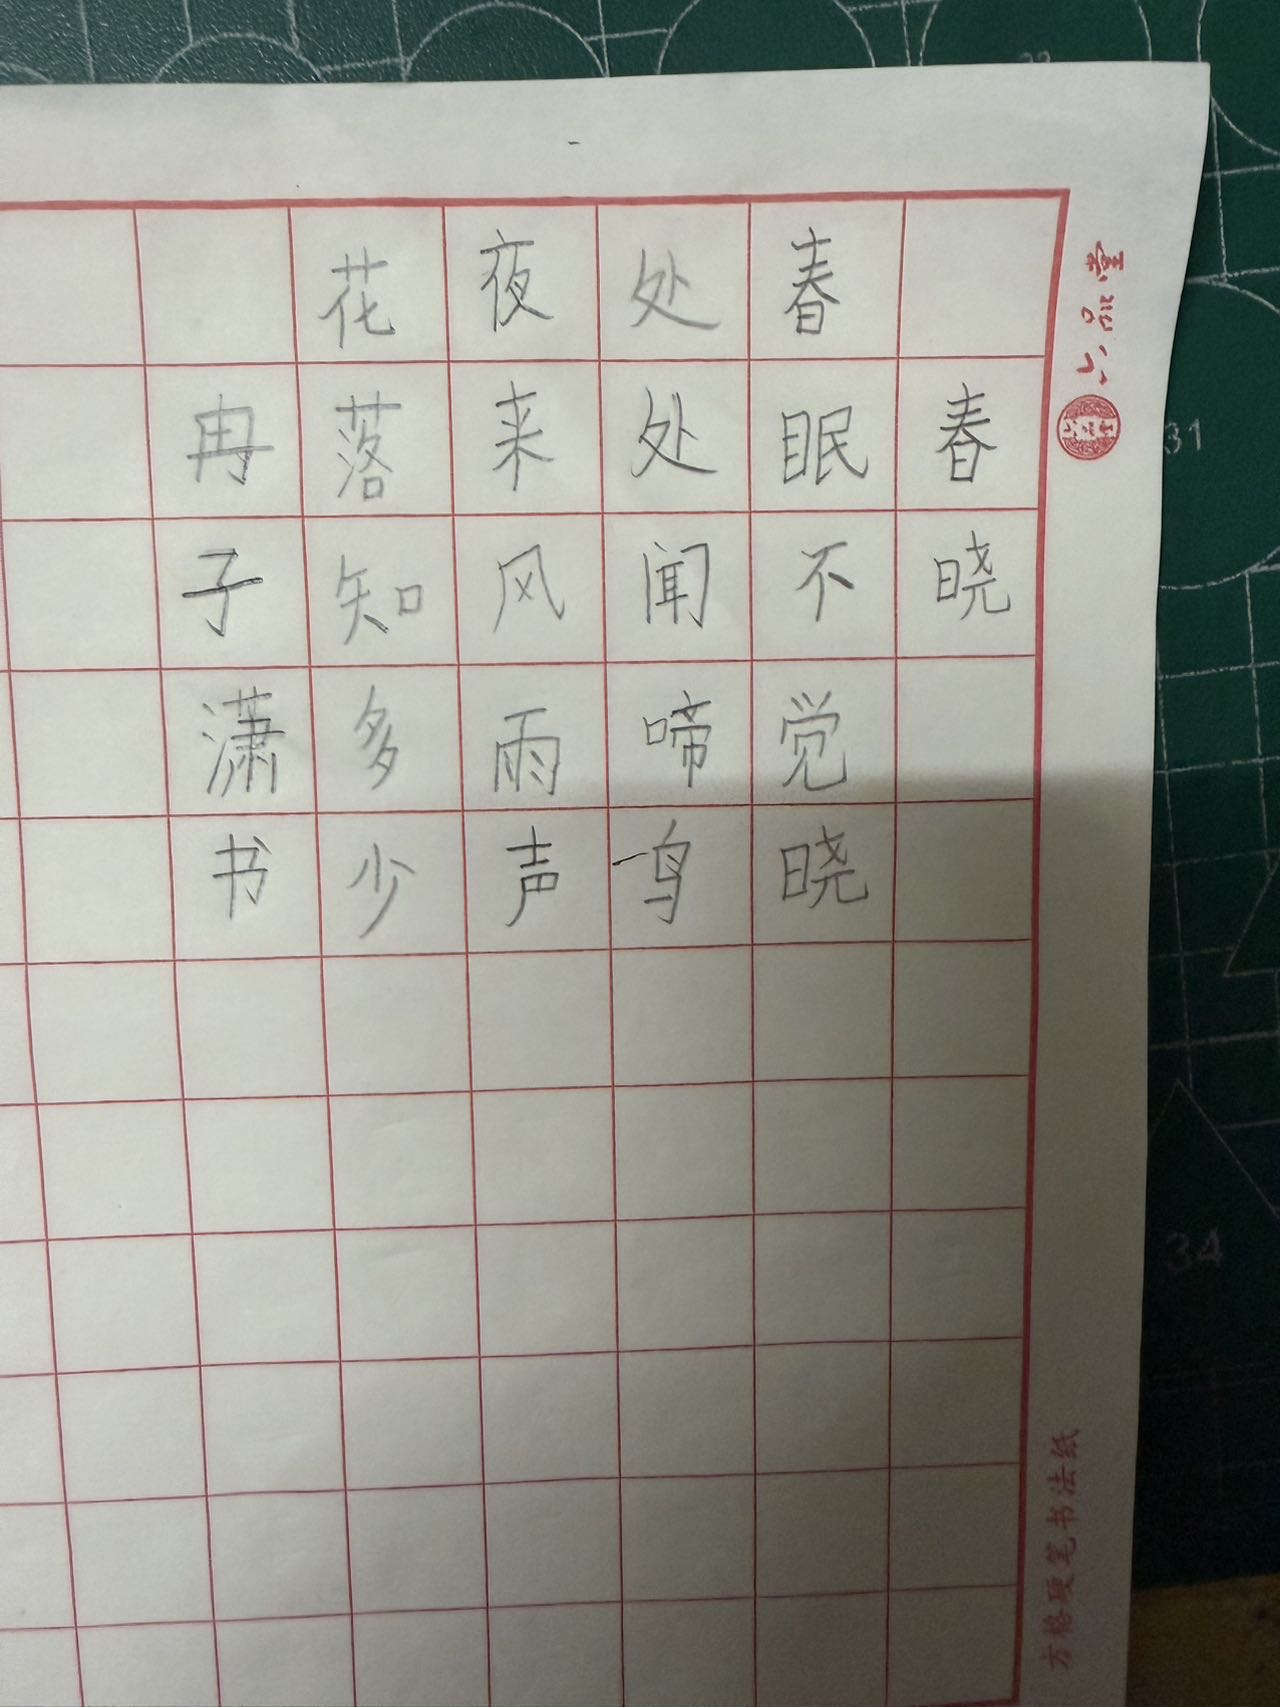 春晓
春眠不觉晓
处处闻啼鸟
夜来风雨声
花落知多少
冉子潇书
六品堂
六品堂
方格硬笔书法纸
31
34